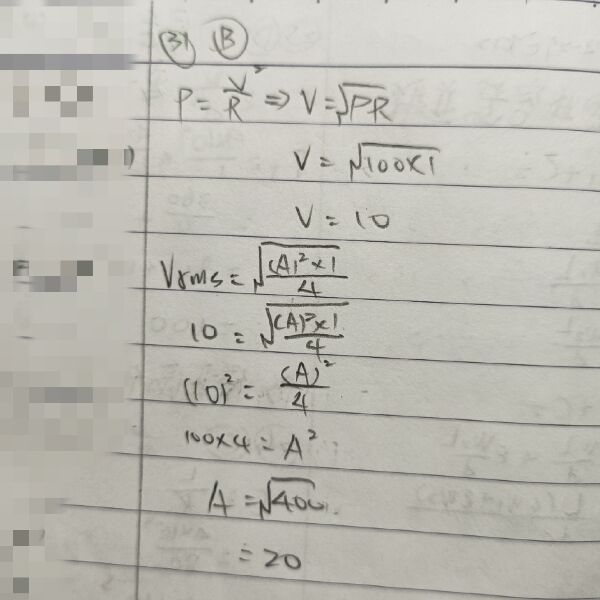 31 B
P = V²/R ⇒ V = √PR
V = √100×1
V = 10
Vrms = √(A)²×1/4
10 = √(A)²×1/4
(10)² = (A)²/4
100×4 = A²
A = √400.
= 20